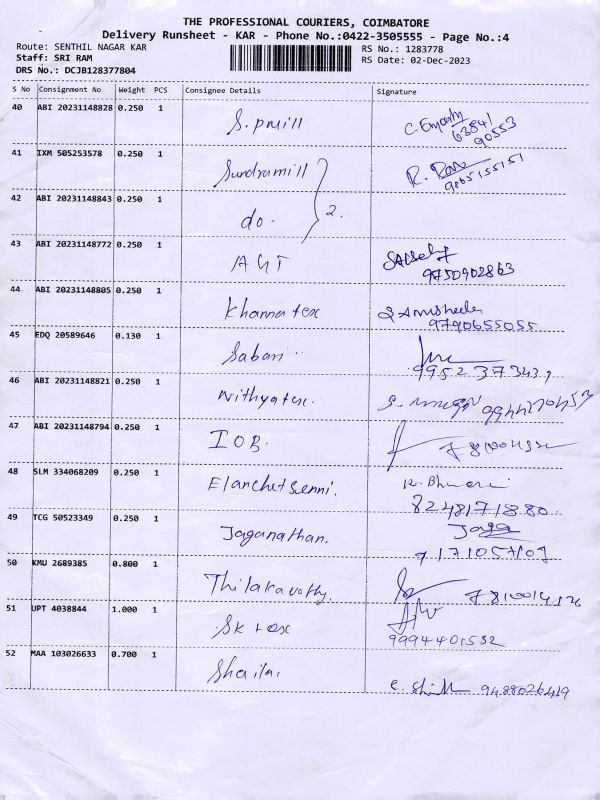 THE PROFESSIONAL COURIERS, COIMBATORE
Delivery Runsheet - KAR - Phone No.:0422-3505555 - Page No.:4
Route: SENTHIL NAGAR KAR
RS No.: 1283778
Staff: SRI RAM
RS Date: 02-Dec-2023
DRS No.: DCJB128377804
S No Consignment No Weight PCS Consignee Details Signature
40 ABI 20231148828 0.250 1 S.pmill
63841
90553
41 IXM 505253578 0.250 1 Sundramill
9065155151
42 ABI 20231148843 0.250 1 do. 2.
43 ABI 20231148772 0.250 1 AGT
9750902863
44 ABI 20231148805 0.250 1 Khanna tex
9790655055
45 EDQ 20589646 0.130 1 Sabari
9952373431
46 ABI 20231148821 0.250 1 Nithyatex.
9944270453
47 ABI 20231148794 0.250 1 IOB.
48 SLM 334068209 0.250 1 Elanchetsenni.
8248171880
49 TCG 50523349 0.250 1 Jaganathan. Jaga
50 KMU 2689385 0.800 1 Thilakavathy.
51 UPT 4038844 1.000 1 Sk tex
9994401532
52 MAA 103026633 0.700 1 Shaila.
9488026419